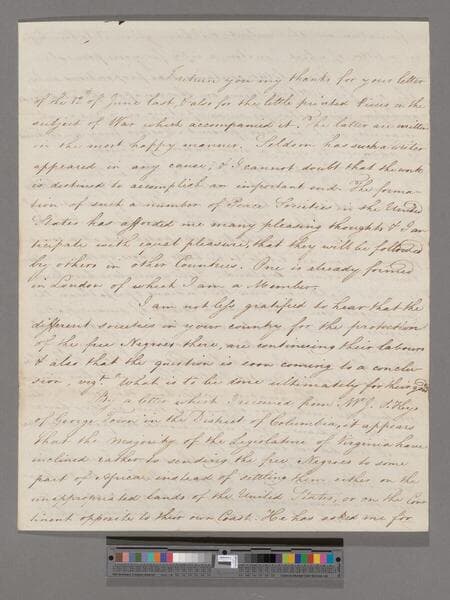 I return you my thanks for your letter
of the 12th of June last, & also for the little printed Piece on the
subject of War which accompanied it. The latter are written
in the most happy manner. Seldom has such a writer
appeared in any cause; & I cannot doubt that the work
is destined to accomplish an important end. The forma-
tion of such a number of Peace Societies in the United
States has afforded me many pleasing thoughts, & I an-
ticipate with great pleasure, that they will be followed
by others in other Countries. One is already formed
in London of which I am a Member.
I am not less gratified to hear that the
different societies in your country for the protection
of the free Negroes there, are continuing their labours
& also that the question is soon coming to a conclu-
sion, vizt. "What is to be done ultimately for their good"
By a letter which I received from Mr. J. S. Keys
of George Town in the District of Columbia, it appears
that the majority of the Legislature of Virginia have
inclined rather to sending the free Negroes to some
part of Africa instead of settling them either on the
unappropriated Lands of the United States, or on the Con-
tinent opposite to their own Coast. He has asked me for